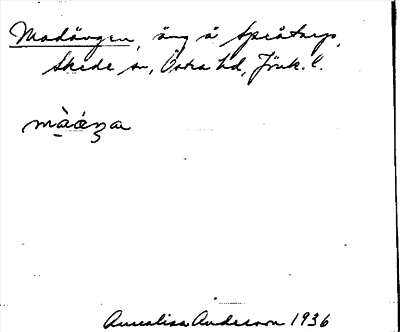 Madängen, äng å Språtarp,
Skede sn, Östra hd, Jönk. l.
Annalisa Anderson 1936